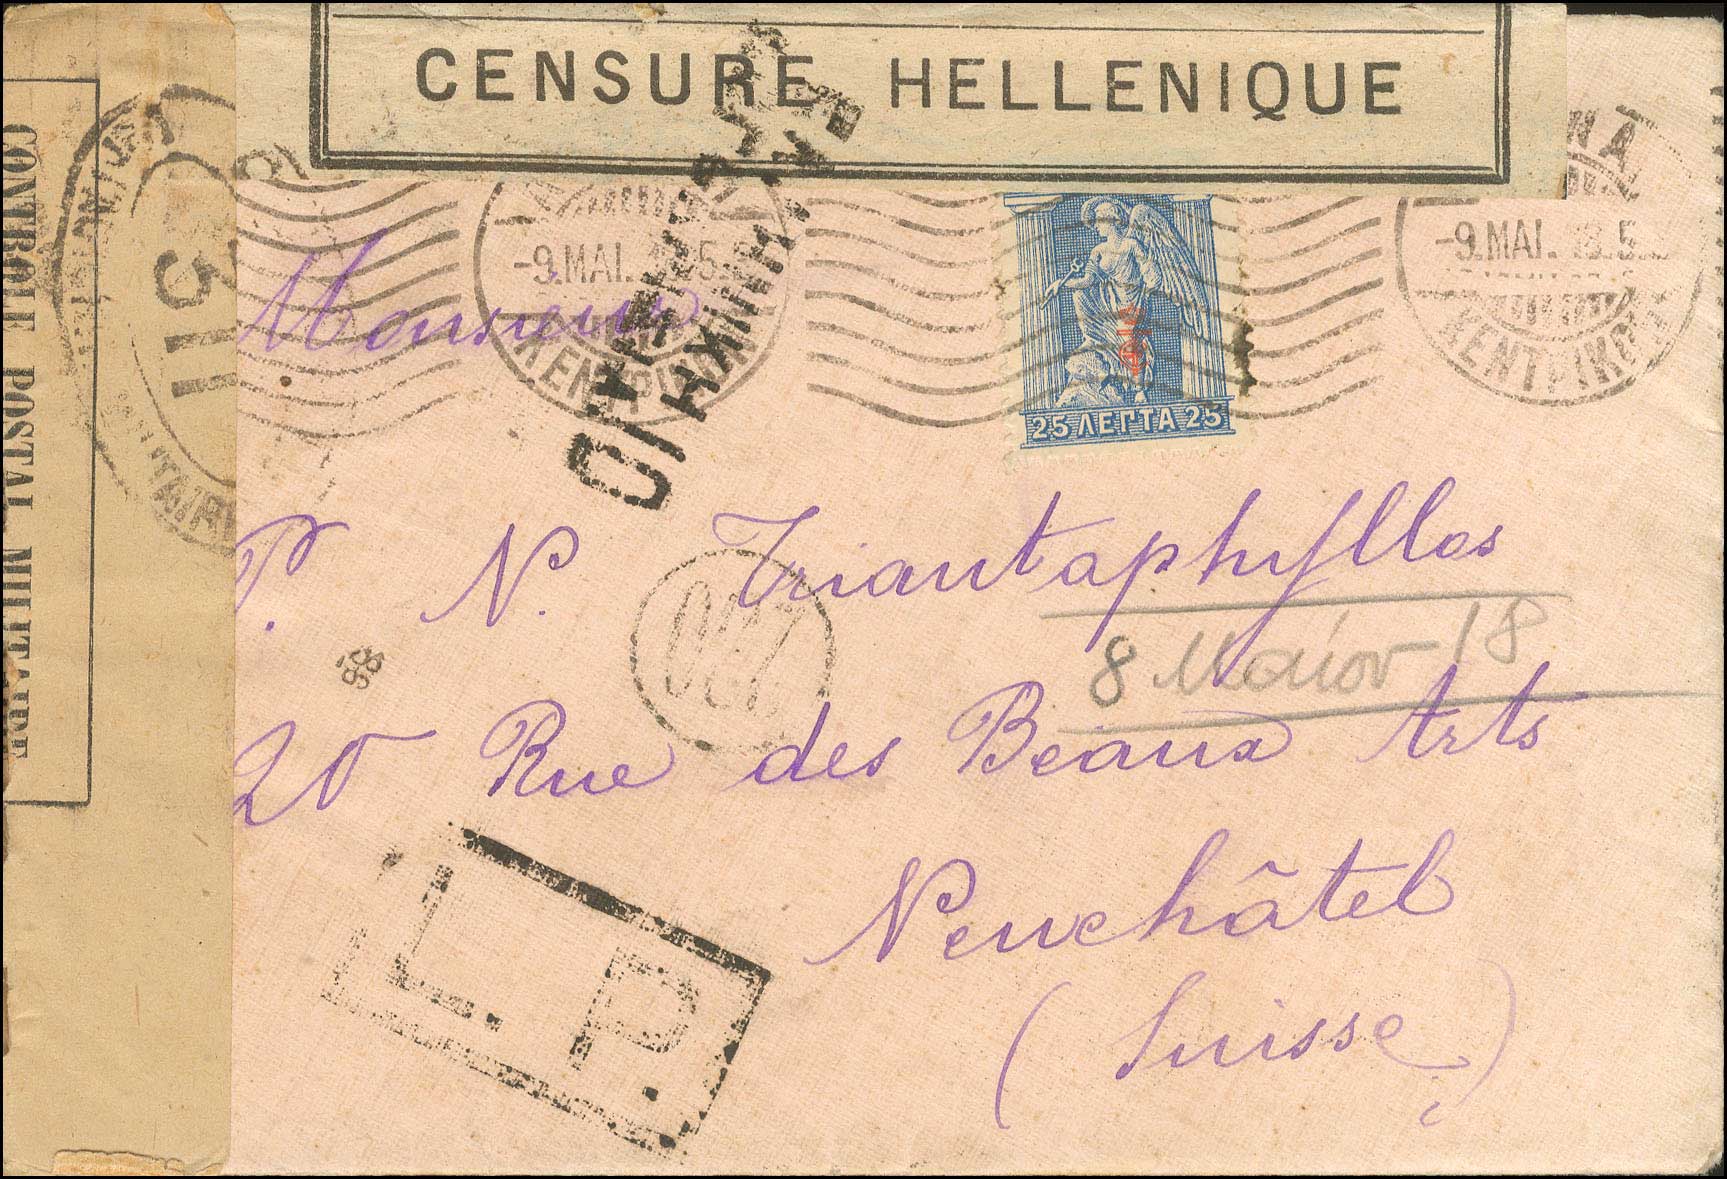 CENSURE HELLENIQUE
CONTROLE POSTAL MILITAIRE
311
-9.MAI.
ΚΕΝΤΡΙΚΟΝ
-9.MAI. 18.5
ΚΕΝΤΡΙΚΟΝ
25 ΛΕΠΤΑ 25
ΕΛΛΗΝΙΚΗ
ΛΟΓΟΚΡΙΣΙΑ
Monsieur
P. N. Triantaphyllos
8 Μαίου 18
20 Rue des Beaux Arts
Neuchâtel
(Suisse)
L. P.